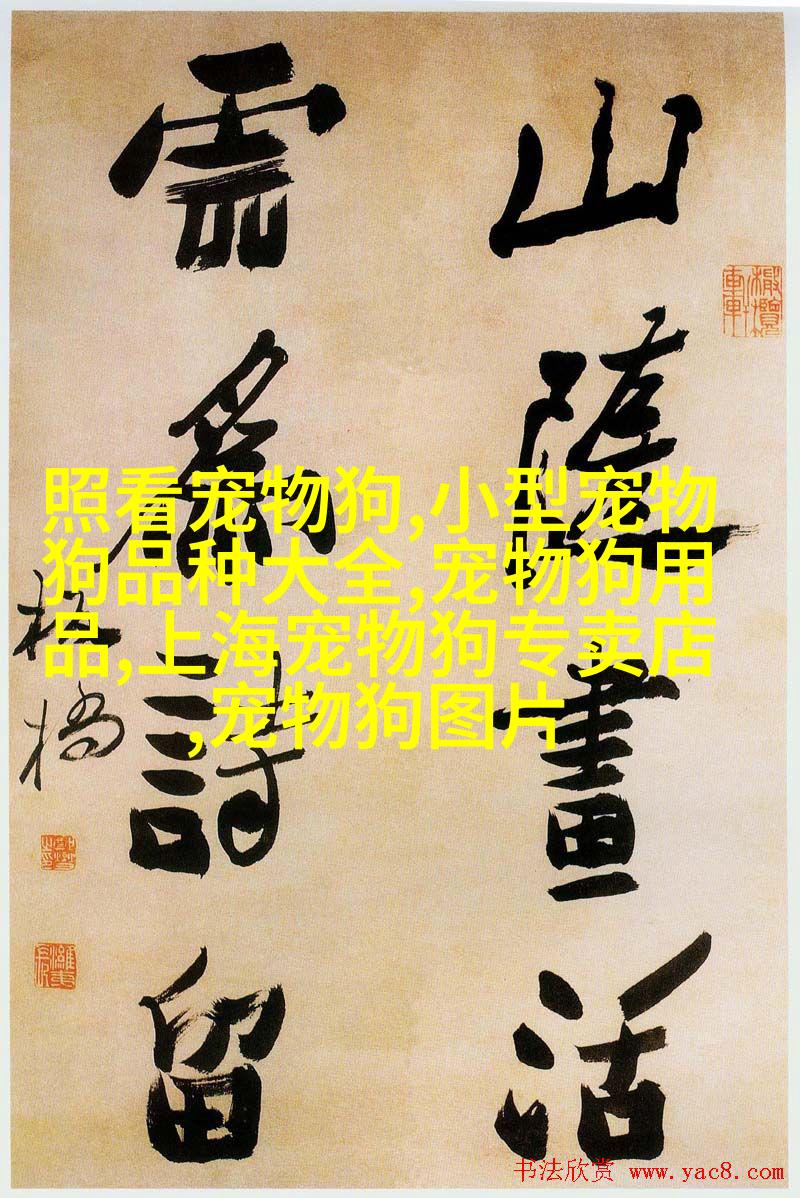 山隨畫活
雲爲詩留
板橋
照看宠物狗,小型宠物
狗品种大全,宠物狗用
品,上海宠物狗专卖店
,宠物狗图片
书法欣赏 www.yac8.com